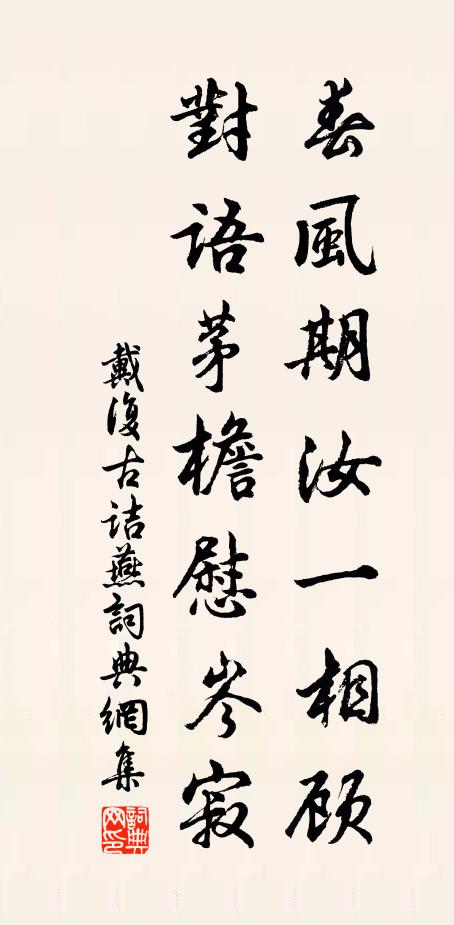 春風期汝一相顾
對語茅檐慰岑寂
戴復古诘燕詞典網集
詞典網印